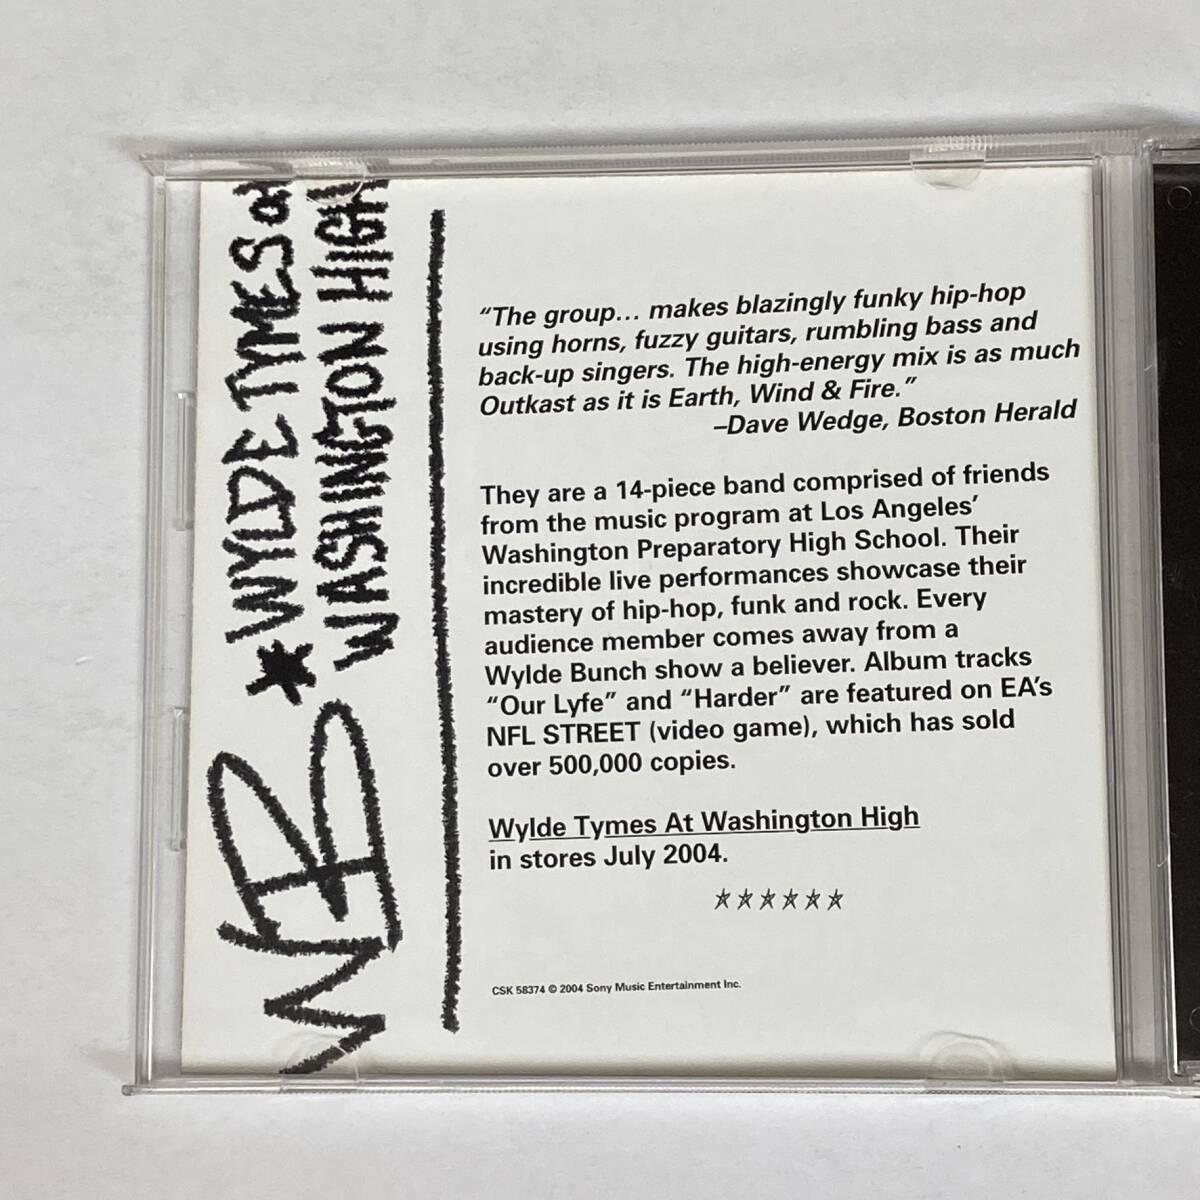 ★ WYLDE TYMES at
WASHINGTON HIGH
WB
“The group... makes blazingly funky hip-hop
using horns, fuzzy guitars, rumbling bass and
back-up singers. The high-energy mix is as much
Outkast as it is Earth, Wind & Fire.”
–Dave Wedge, Boston Herald
They are a 14-piece band comprised of friends
from the music program at Los Angeles’
Washington Preparatory High School. Their
incredible live performances showcase their
mastery of hip-hop, funk and rock. Every
audience member comes away from a
Wylde Bunch show a believer. Album tracks
“Our Lyfe” and “Harder” are featured on EA’s
NFL STREET (video game), which has sold
over 500,000 copies.
Wylde Tymes At Washington High
in stores July 2004.
☆☆☆☆☆☆
CSK 58374 © 2004 Sony Music Entertainment Inc.